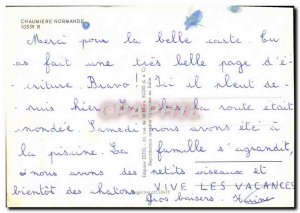 CHAUMIERE NORMANDE
10539 R
Merci pour la belle carte. Tu
as fait une très belle page d'é-
criture. Bravo ! Ici il pleut de-
puis hier. la route était
inondée. Samedi nous avons été à
la piscine. La famille s'agrandit,
nous avons des petits oiseaux et
bientôt des chatons. VIVE LES VACANCES
Gros baisers.